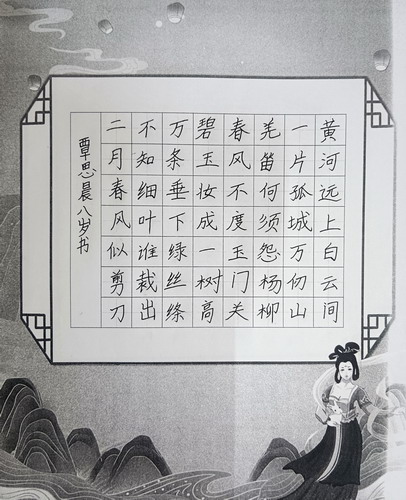 黄河远上白云间
一片孤城万仞山
羌笛何须怨杨柳
春风不度玉门关
碧玉妆成一树高
万条垂下绿丝绦
不知细叶谁裁出
二月春风似剪刀
覃思晨八岁书